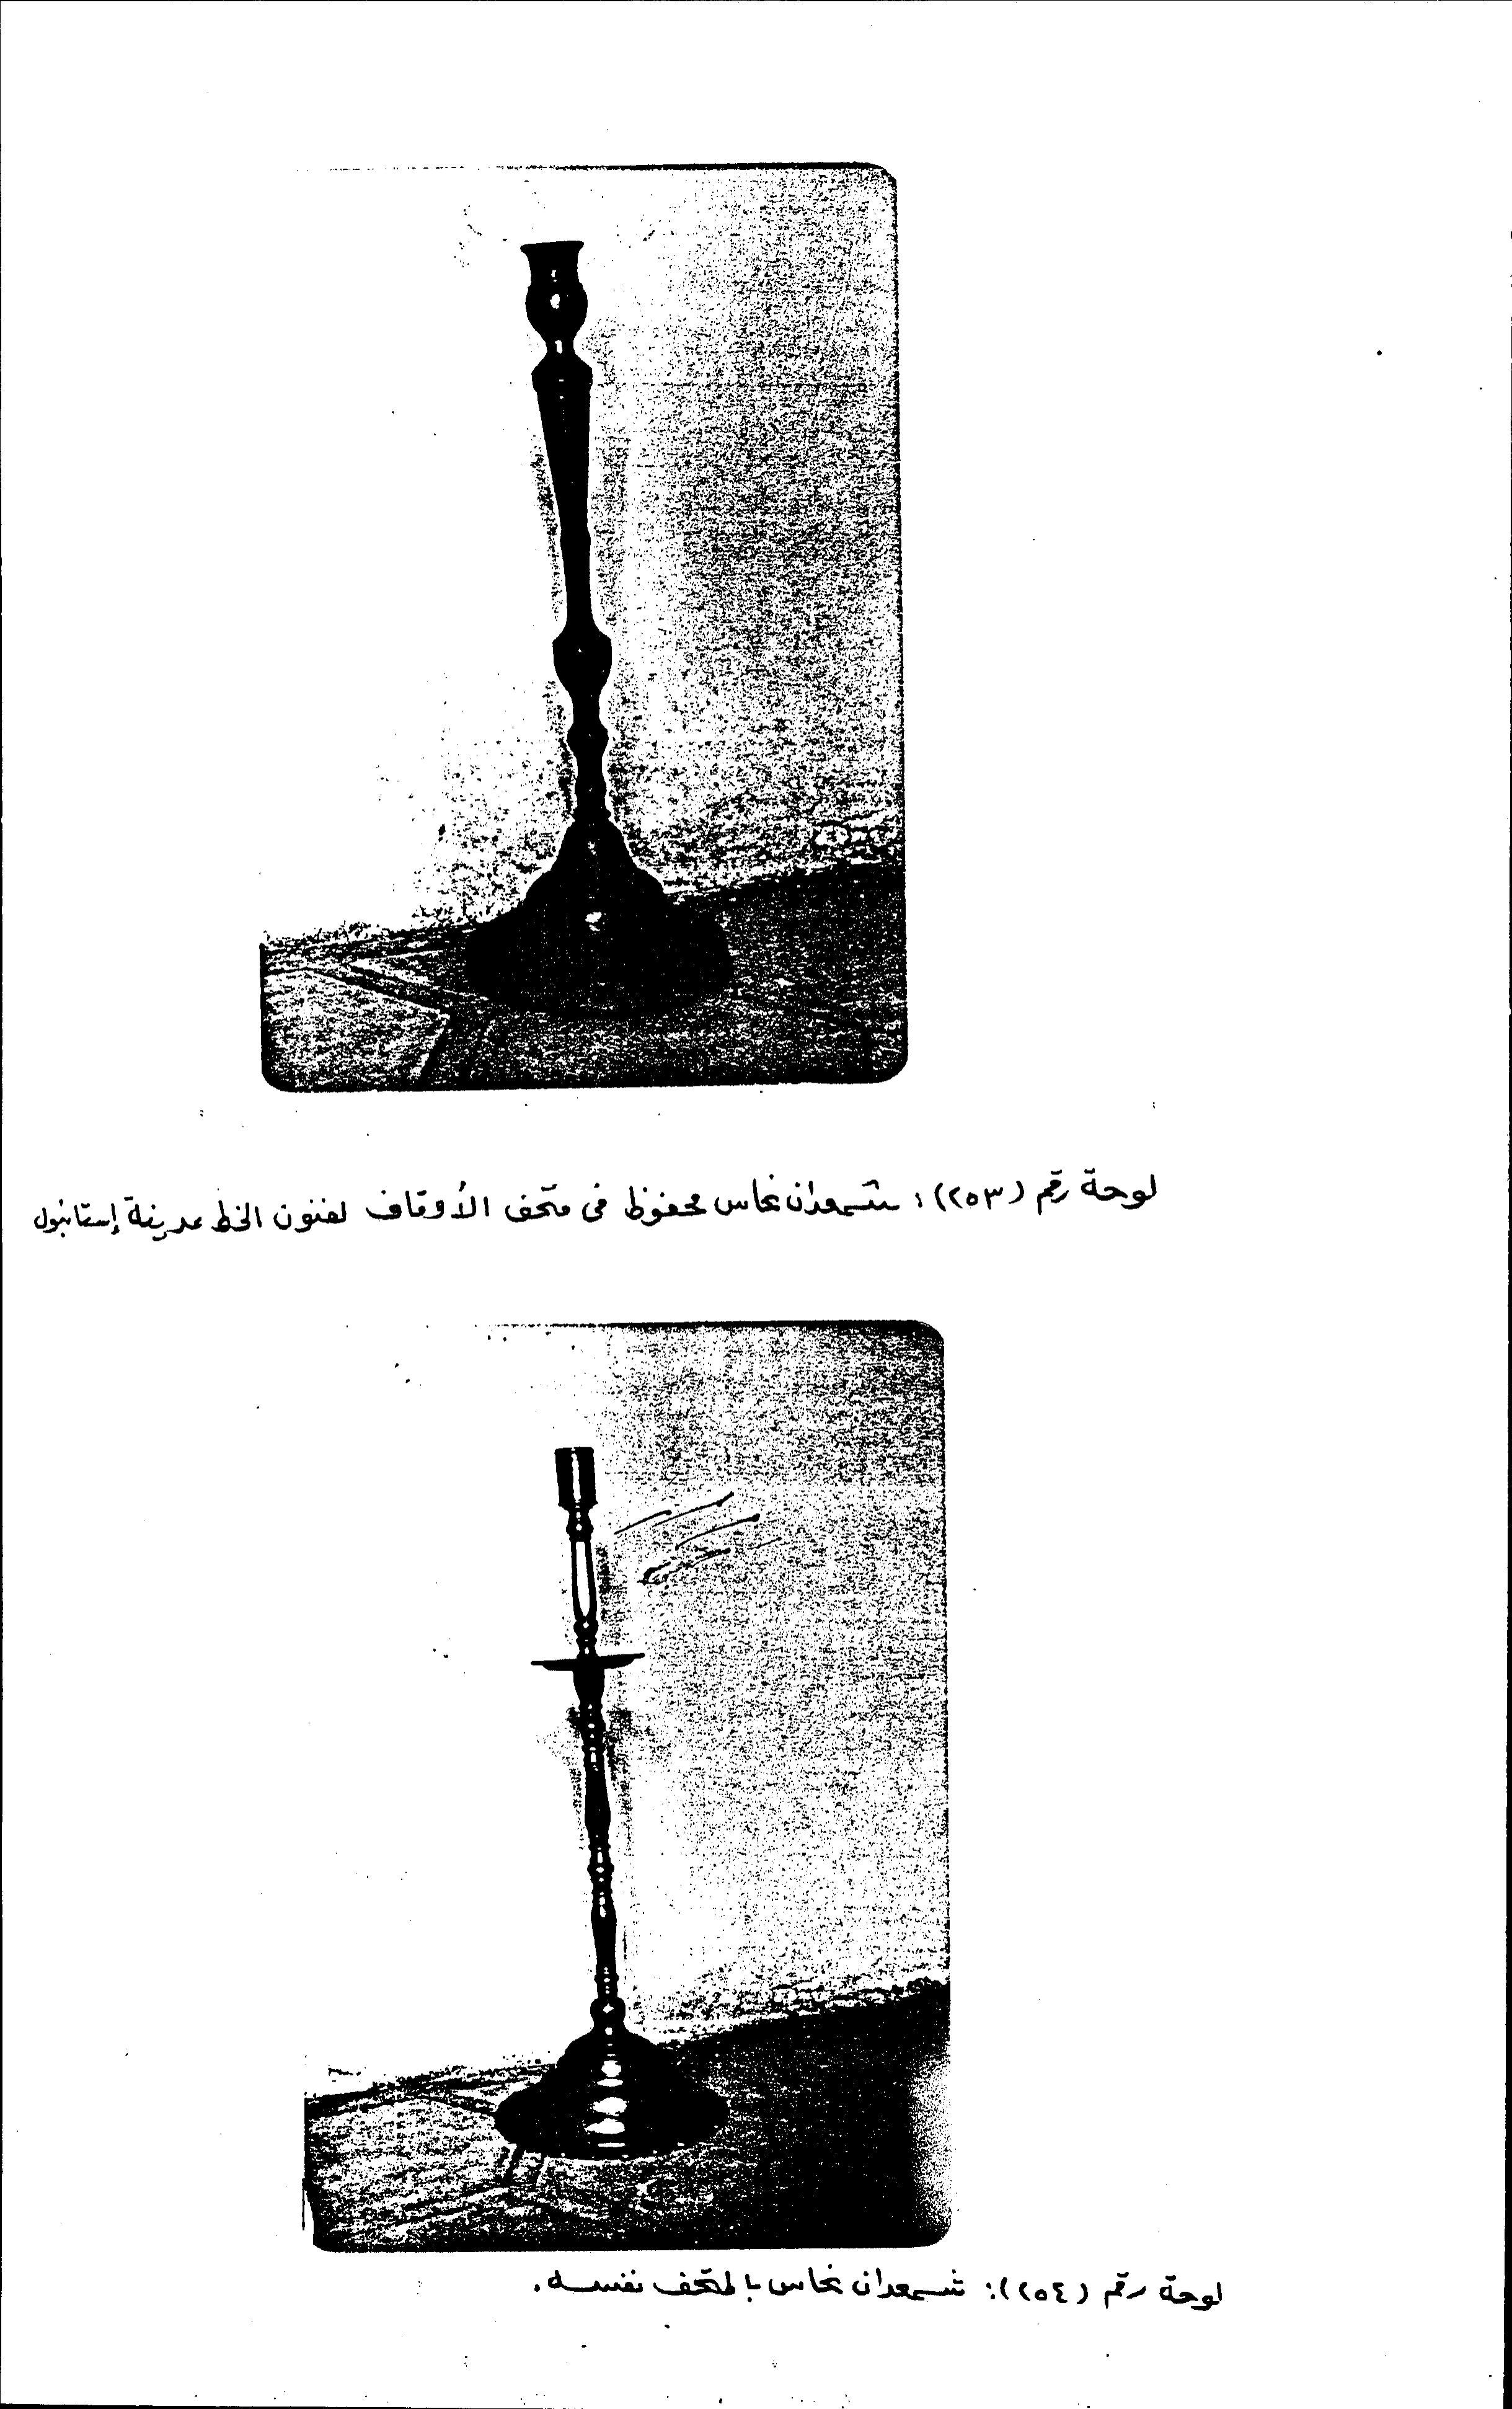 لوحة رقم (٢٥٣): شمعدان نحاس محفوظ فى متحف الأوقاف لفنون الخط بمدينة إستانبول
لوحة رقم (٢٥٤): شمعدان نحاس بالمتحف نفسه.